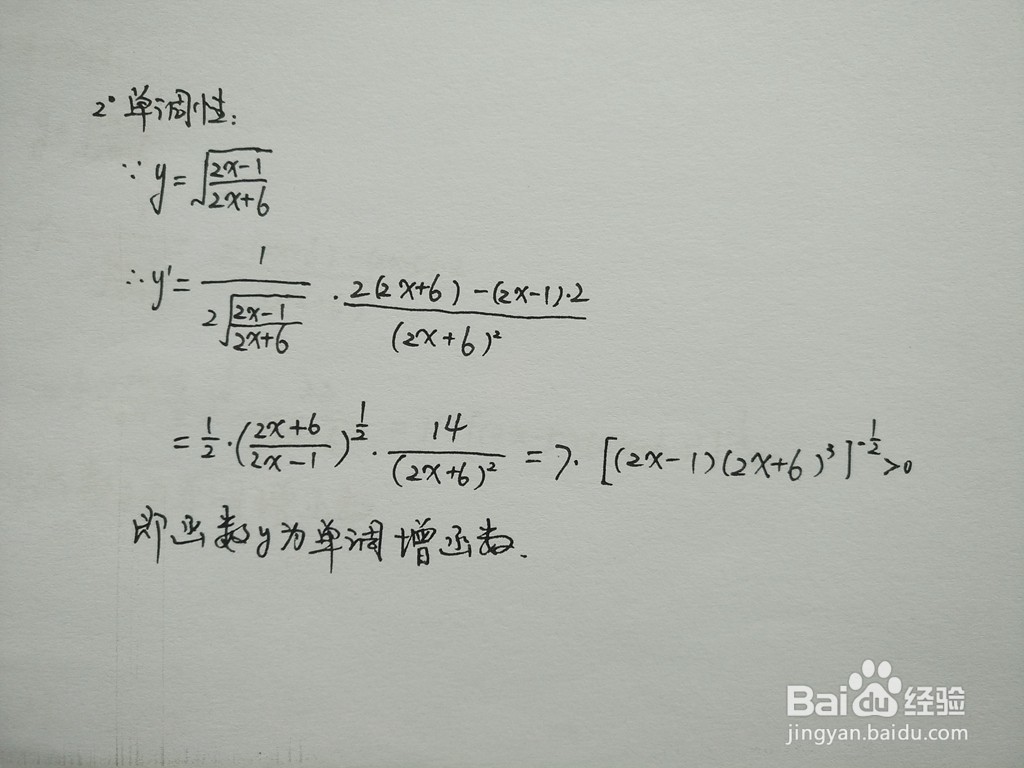 2° 单调性:
∵ y = √((2x-1)/(2x+6))
∴ y' = 1/(2√((2x-1)/(2x+6))) · (2(2x+6)-(2x-1)·2)/(2x+6)²
= 1/2 · ((2x+6)/(2x-1))^(1/2) · 14/(2x+6)² = 7 · [(2x-1)(2x+6)³]^(-1/2) >0
即函数y为单调增函数.
Baidu经验
jingyan.baidu.com